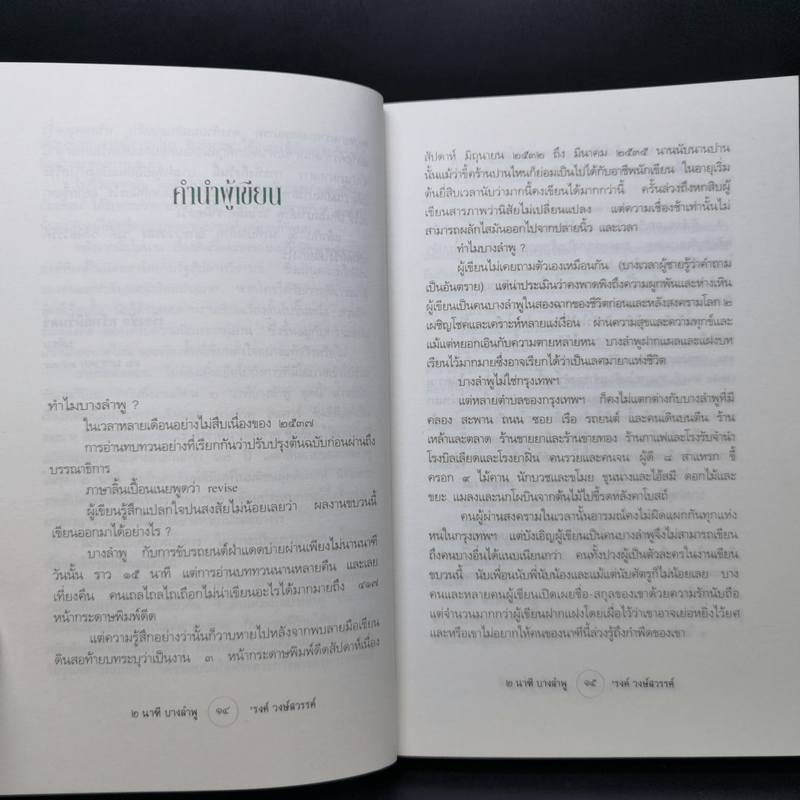 คำนำผู้เขียน
ทำไมบางลำพู ?
ในเวลาหลายเดือนอย่างไม่สืบเนื่องของ ๒๕๓๗
การอ่านทบทวนอย่างที่เรียกกันว่าปรับปรุงต้นฉบับก่อนผ่านถึง
บรรณาธิการ
ภาษาลิ้นเปื้อนเนยพูดว่า revise
ผู้เขียนรู้สึกแปลกใจปนสงสัยไม่น้อยเลยว่า ผลงานขบวนนี้
เขียนออกมาได้อย่างไร ?
บางลำพู กับการขับรถยนต์ฝ่าแดดบ่ายผ่านเพียงไม่นานนาที
วันนั้น ราว ๑๕ นาที แต่การอ่านบททวนนานหลายคืน และเลย
เที่ยงคืน คนเถลไถลไถเถือกไม่น่าเขียนอะไรได้มากมายถึง ๔๑๗
หน้ากระดาษพิมพ์ดีด
แต่ความรู้สึกอย่างว่านั้นก็วาบหายไปหลังจากพบลายมือเขียน
ดินสอท้ายบทระบุว่าเป็นงาน ๓ หน้ากระดาษพิมพ์ดีดสัปดาห์เนื่อง
๒ นาที บางลำพู ๑๔ 'รงค์ วงษ์สวรรค์
สัปดาห์ มิถุนายน ๒๕๓๒ ถึง มีนาคม ๒๕๓๕ นานนับนานปาน
นั้นแม้ว่าขี้คร้านปานไหนก็ย่อมเป็นไปได้กับอาชีพนักเขียน ในอายุเริ่ม
ต้นยี่สิบเวลานับว่ามากนี้คงเขียนได้มากกว่านี้ ครั้นล่วงถึงหกสิบผู้
เขียนสารภาพว่านิสัยไม่เปลี่ยนแปลง แต่ความเชื่องช้าเท่านั้นไม่
สามารถผลักไสมันออกไปจากปลายนิ้ว และเวลา
ทำไมบางลำพู ?
ผู้เขียนไม่เคยถามตัวเองเหมือนกัน (บางเวลาผู้ชายรู้ว่าคำถาม
เป็นอันตราย) แต่น่าประเมินว่าคงพาดพิงถึงความผูกพันและห่างเหิน
ผู้เขียนเป็นคนบางลำพูในสองฉากของชีวิตก่อนและหลังสงครามโลก ๒
เผชิญโชคและเคราะห์หลายแง่เงื่อน ผ่านความสุขและความทุกข์และ
แม้แต่หยอกเอินกับความตายหลายหน บางลำพูฝากแผลและแฝงบท
เรียนไว้มากมายซึ่งอาจเรียกได้ว่าเป็นเลศมายาแห่งชีวิต
บางลำพูไม่ใช่กรุงเทพฯ
แต่หลายตำบลของกรุงเทพฯ ก็คงไม่แตกต่างกับบางลำพูที่มี
คลอง สะพาน ถนน ซอย เรือ รถยนต์ และคนเดินบนตีน ร้าน
เหล้าและตลาด ร้านขายยาและร้านขายทอง ร้านกาแฟและโรงรับจำนำ
โรงบิลเลียดและโรงยาฝิ่น คนรวยและคนจน ผู้ดี ๘ สาแหรก ขี้
ครอก ๙ ไม้คาน นักบวชและขโมย ขุนนางและไอ้สมี ดอกไม้และ
ขยะ แมลงและนกโผบินจากต้นไม้ไปขี้รดหลังคาโบสถ์
คนผู้ผ่านสงครามในเวลานั้นอารมณ์คงไม่ผิดแผกกันทุกแห่ง
หนในกรุงเทพฯ แต่บังเอิญผู้เขียนเป็นคนบางลำพูจึงไม่สามารถเขียน
ถึงคนบางอื่นได้แนบเนียนกว่า คนทั้งปวงผู้เป็นตัวละครในงานเขียน
ขบวนนี้ นับเพื่อนนับพี่นับน้องและแม้แต่นับศัตรูก็ไม่น้อยเลย บาง
คนและหลายคนผู้เขียนเปิดเผยชื่อ-สกุลของเขาด้วยความรักนับถือ
แต่จำนวนมากกว่าผู้เขียนฝากแฝงโดยเผื่อไว้ว่าเขาอาจเย่อหยิ่งไว้ยศ
และหรือเขาไม่อยากให้คนของนาทีนี้ล่วงรู้ถึงกำพืดของเขา
๒ นาที บางลำพู ๑๕ 'รงค์ วงษ์สวรรค์